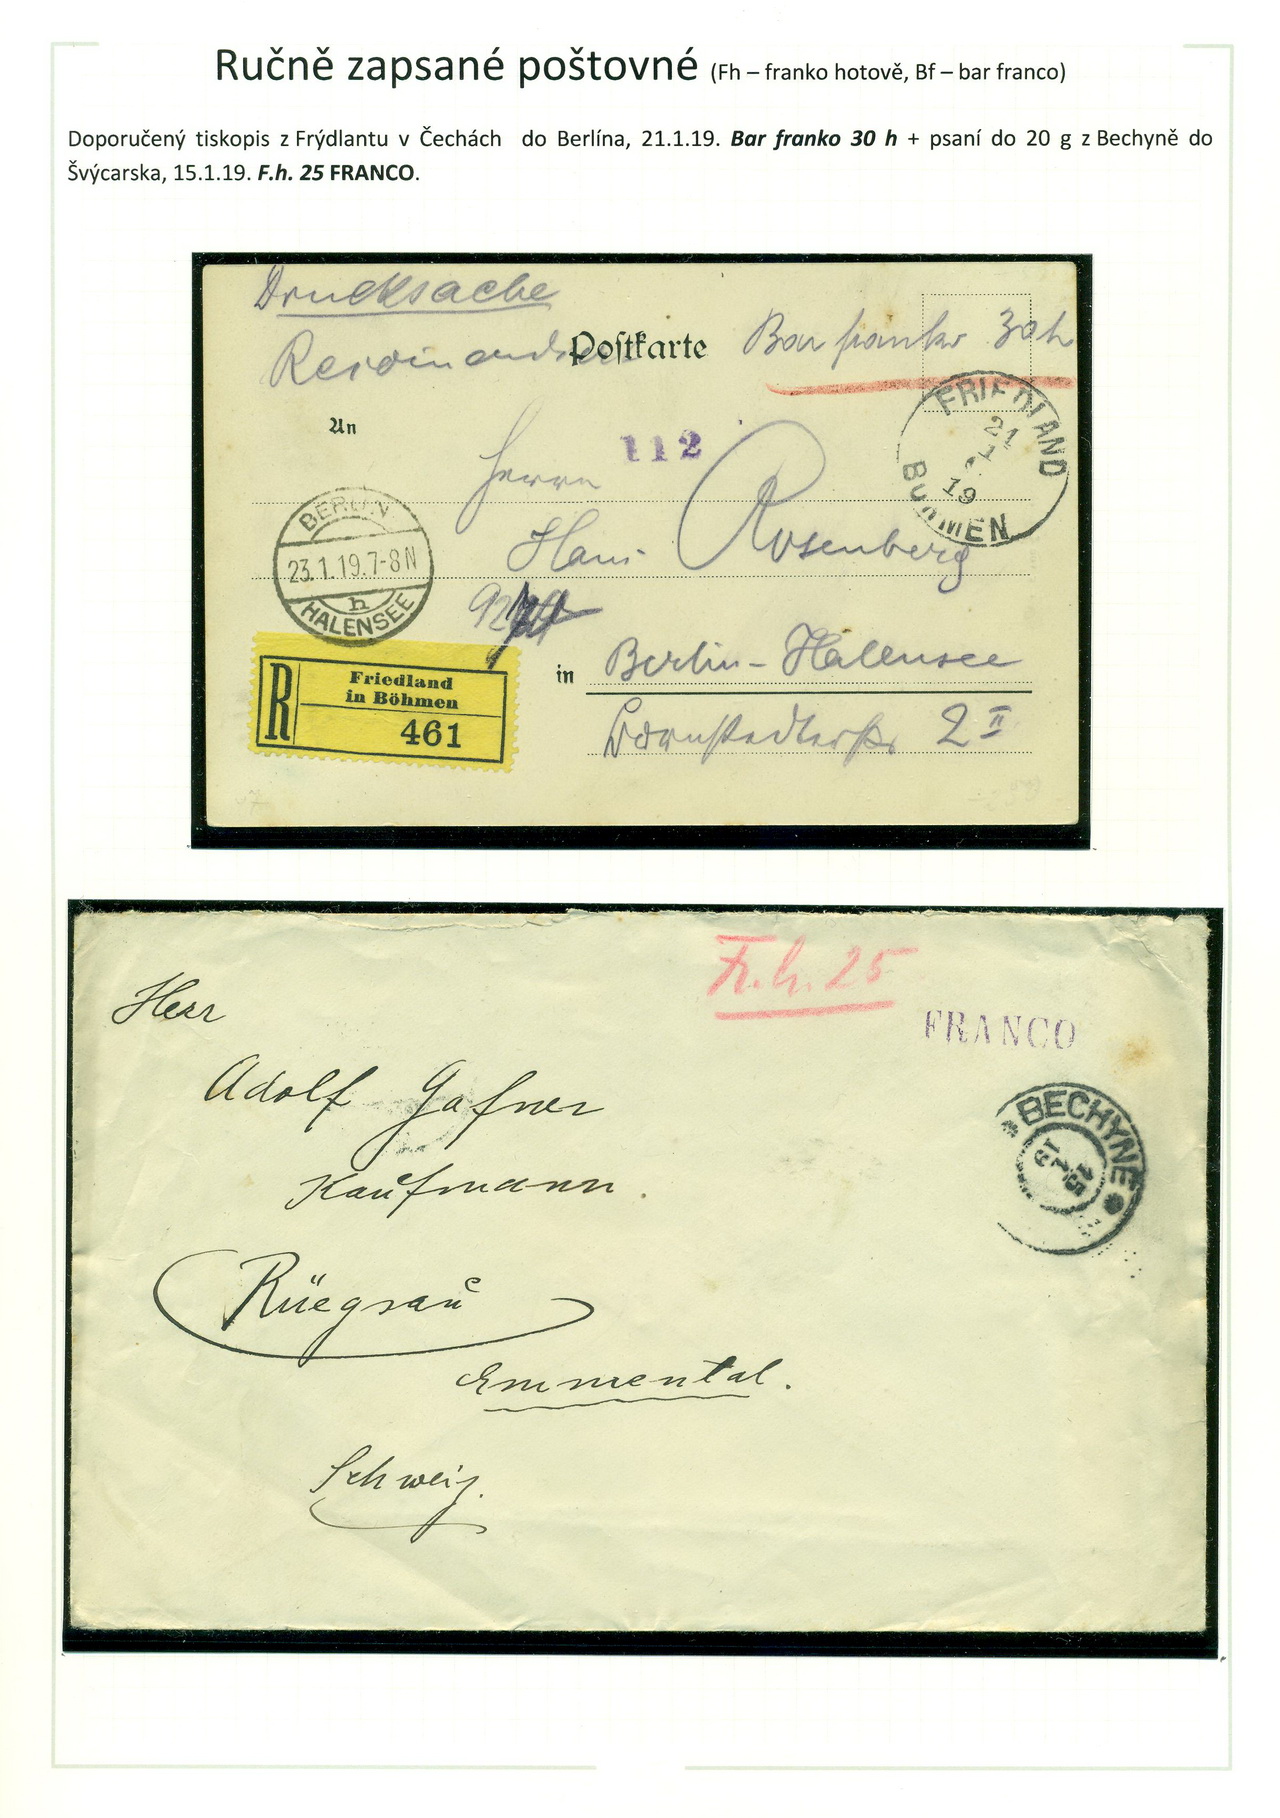 Ručně zapsané poštovné (Fh – franko hotově, Bf – bar franco)
Doporučený tiskopis z Frýdlantu v Čechách do Berlína, 21.1.19. Bar franko 30 h + psaní do 20 g z Bechyně do
Švýcarska, 15.1.19. F.h. 25 FRANCO.
Drucksache
Postkarte
Bar franko 30 h
An
112
FRIEDLAND
21
1
19
BÖHMEN
Herrn
Hans Rosenberg
BERLIN
23.1.19.7-8N
h
HALENSEE
in Berlin-Halensee
2 II
R
Friedland
in Böhmen
461
Fr. h. 25
FRANCO
Herr
Adolf Gafner
Kaufmann.
BECHYNĚ
15
1
19
Rüegsau
Emmental.
Schweiz.